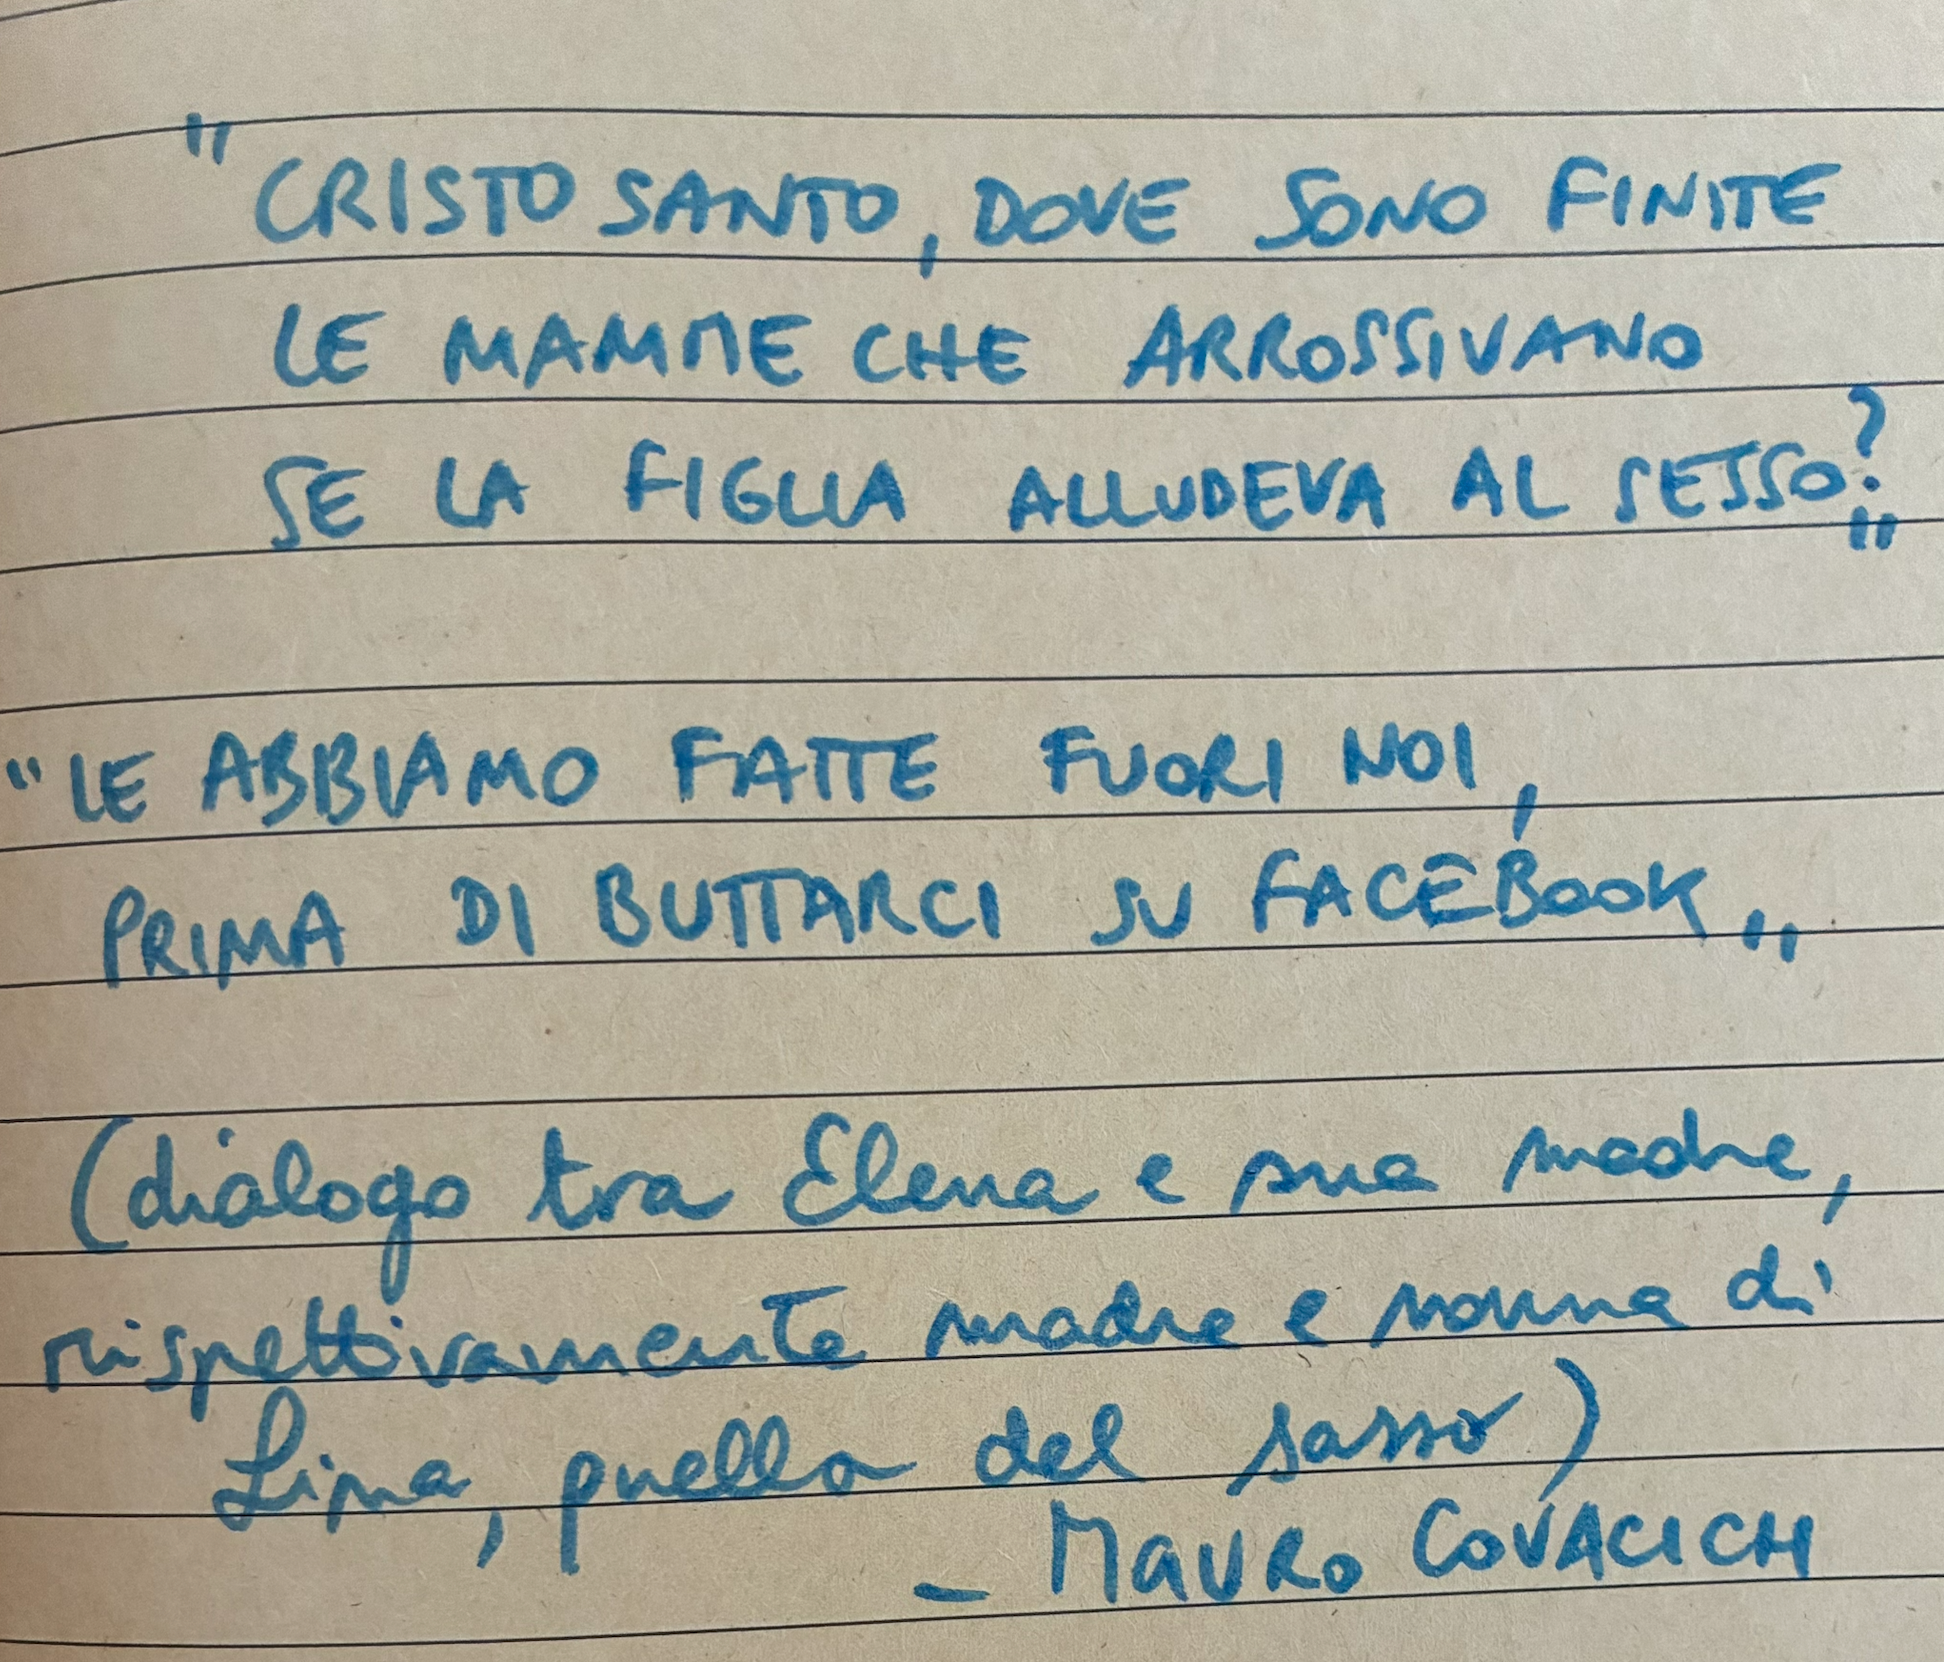 "CRISTO SANTO, DOVE SONO FINITE
LE MAMME CHE ARROSSIVANO
SE LA FIGLIA ALLUDEVA AL SESSO?"
"LE ABBIAMO FATTE FUORI NOI,
PRIMA DI BUTTARCI SU FACEBOOK"
(dialogo tra Elena e sua madre,
rispettivamente madre e nonna di
Lina, quella del sasso)
- MAURO COVACICH